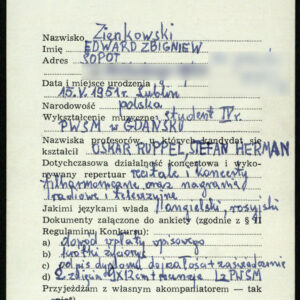 Nazwisko Zienkowski
Imię EDWARD ZBIGNIEW
Adres SOPOT
Data i miejsce urodzenia
15.V.1951 r. Lublin
Narodowość polska
Wykształcenie muzyczne student IV r.
PWSM w GDAŃSKU
Nazwiska profesorów, u których kandydat się
kształcił OSKAR RUPPEL, STEFAN HERMAN
Dotychczasowa działalność koncertowa i wyko-
nywany repertuar recitale i koncerty
filharmoniczne oraz nagrania
radiowe i telewizyjne
Jakimi językami włada angielski, rosyjski
Dokumenty załączone do ankiety (zgodnie z §
Regulaminu Konkursu):
a) dowód wpłaty wpisowego
b) krótki życiorys
c) odpis dyplomu
d) 2 zdjęcia z PWSM
Przyjeżdżam z własnym akompaniatorem — tak